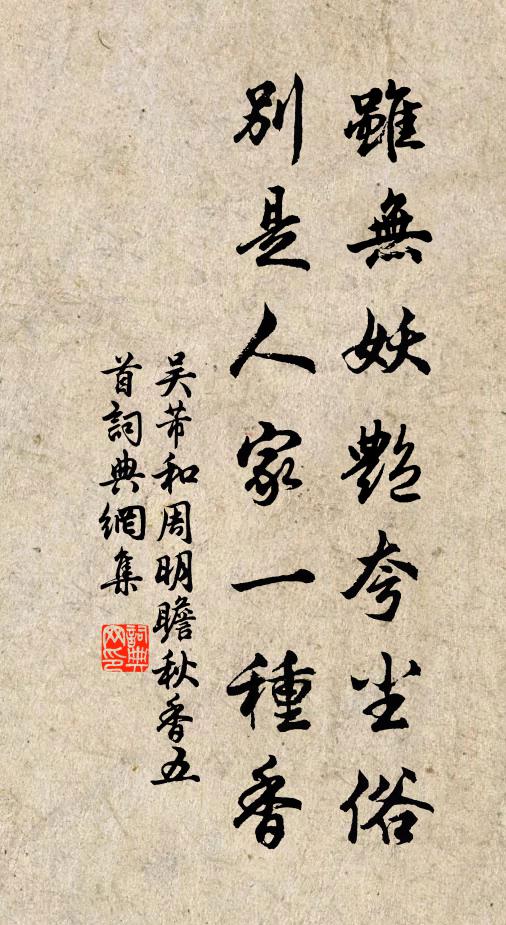 雖無妖艷夸尘俗
別是人家一種香
吴芾和周明瞻秋香五
首詞典網集
詞典网印